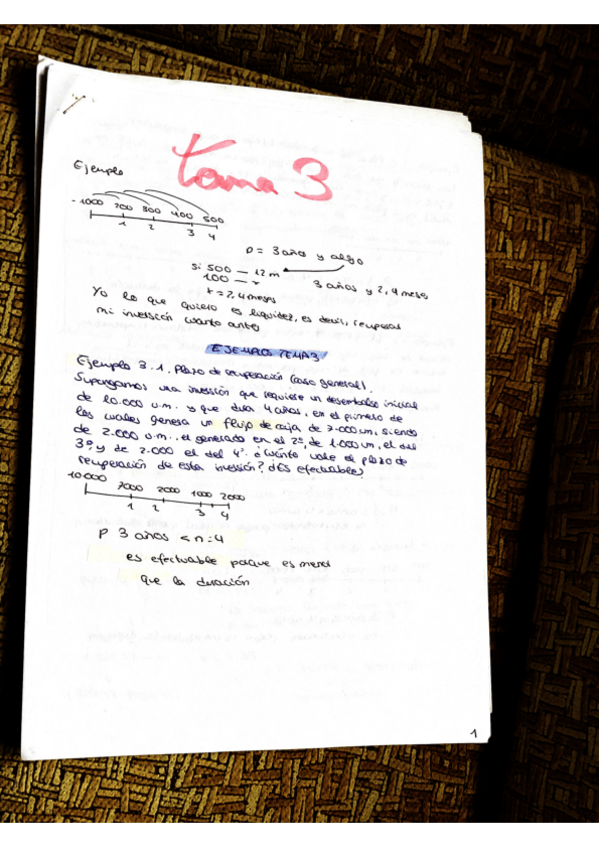 tema 3
Ejemplo
-1000 200 300 400 500
1 2 3 4
p = 3 años y algo
si 500 — 12 m
100 — x
3 años y 2,4 meses
x = 2,4 meses
Yo lo que quiero es liquidez, es decir, recuperar
mi inversión cuanto antes
EJEMPLO TEMA 3
Ejemplo 3.1. Plazo de recuperación (caso general).
Supongamos una inversión que requiere un desembolso inicial
de 10.000 u.m. y que dura 4 años, en el primero de
los cuales genera un flujo de caja de 7.000 um, siendo
de 2.000 u.m. el generado en el 2º, de 1.000 um, el del
3º, y de 2.000 el del 4º. ¿Cuánto vale el plazo de
recuperación de esta inversión? ¿Es efectuable?
10000 7000 2000 1000 2000
1 2 3 4
p 3 años < n=4
es efectuable porque es menor
que la duración
1